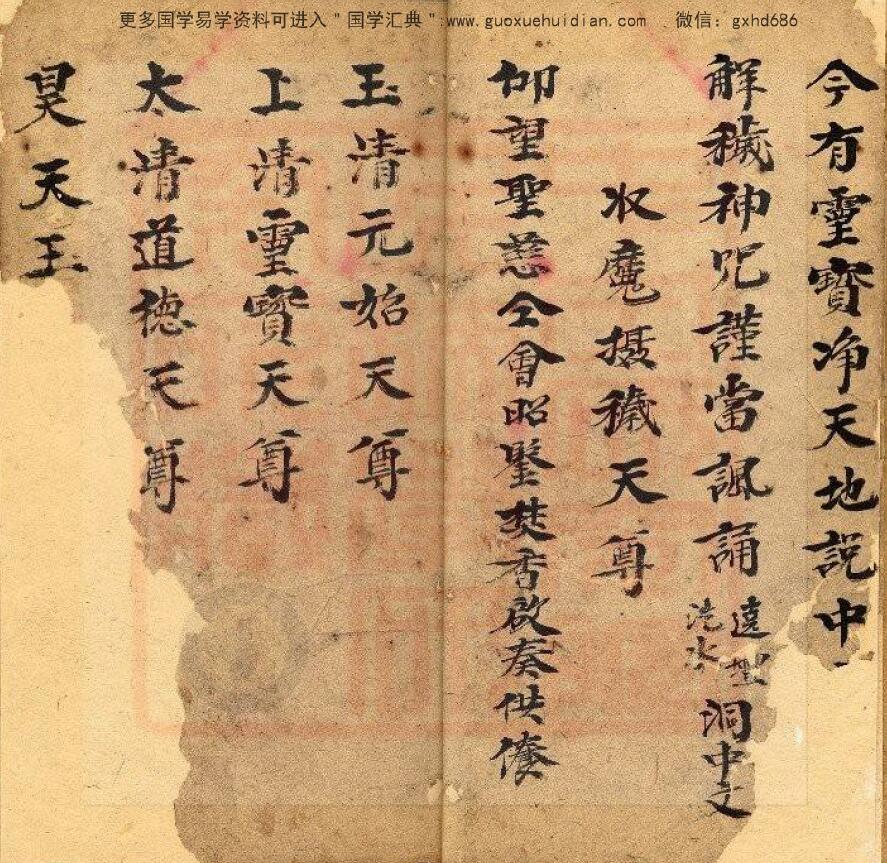 更多国学易学资料可进入＂国学汇典＂:www.guoxuehuidian.com 微信：gxhd686
今有靈寳净天地説中
解穢神咒謹當諷誦 遶壇 洗水 洞中文
收魔摄穢天尊
仰望聖慈仝會昭鑒焚香啟奏供僾
玉清元始天尊
上清靈寳天尊
太清道德天尊
昊天玉